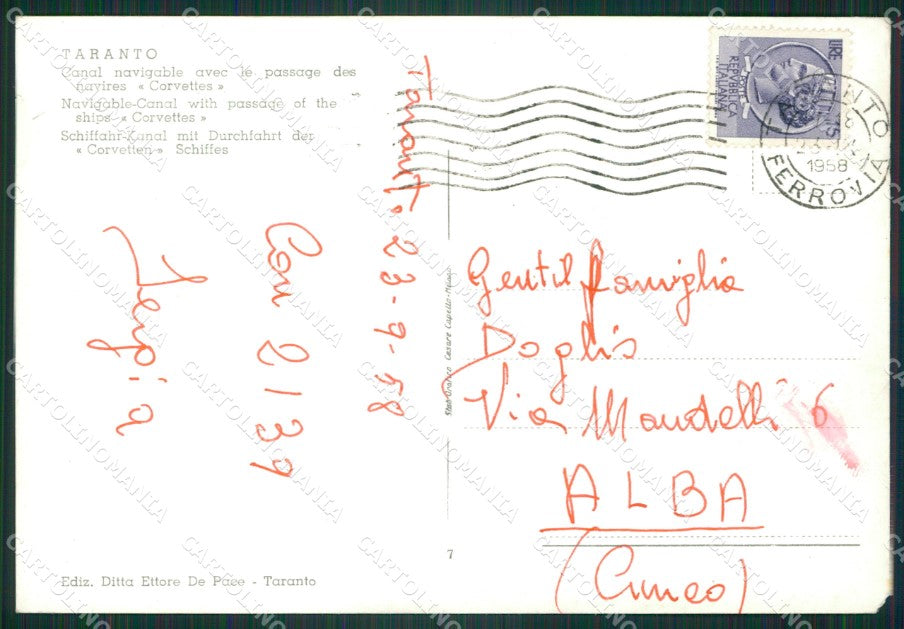 TARANTO
Canal navigable avec le passage des
navires « Corvettes »
Navigable-Canal with passage of the
ships « Corvettes »
Schiffahr-Kanal mit Durchfahrt der
« Corvetten » Schiffes
Taranto 23-9-58
LIRE 15
REPVBBLICA
ITALIANA
TARANTO
1958
FERROVIA
Gentil famiglia
Doglis
Via Mandelli 6
ALBA
(Cuneo)
Stab. Grafico Cesare Capello-Milano
7
Ediz. Ditta Ettore De Pace - Taranto
CARTOLINOMANIA